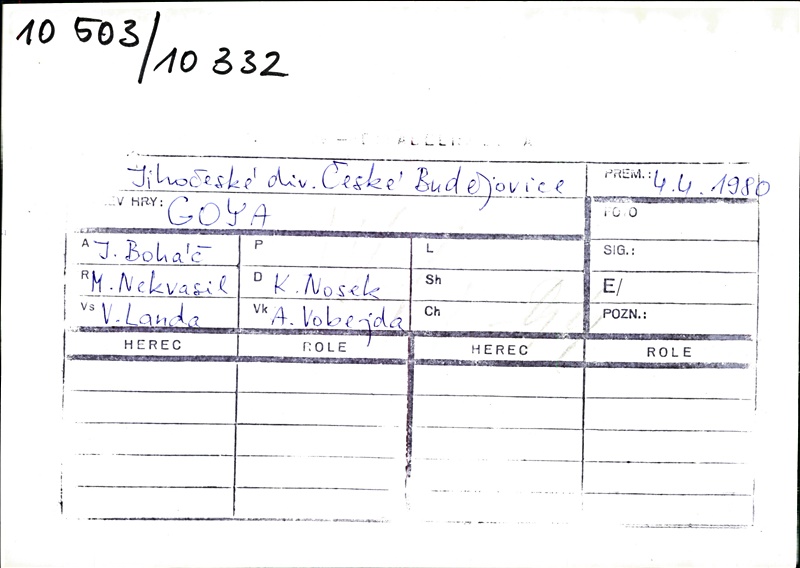 10 503/10 332
Jihočeské div. České Budějovice PREM.: 4.4. 1980
V HRY: GOYA FOTO
A J. Boháč P L SIG.:
R M. Nekvasil D K. Nosek Sh E/
Vs V. Landa Vk A. Vobejda Ch POZN.:
HEREC ROLE HEREC ROLE